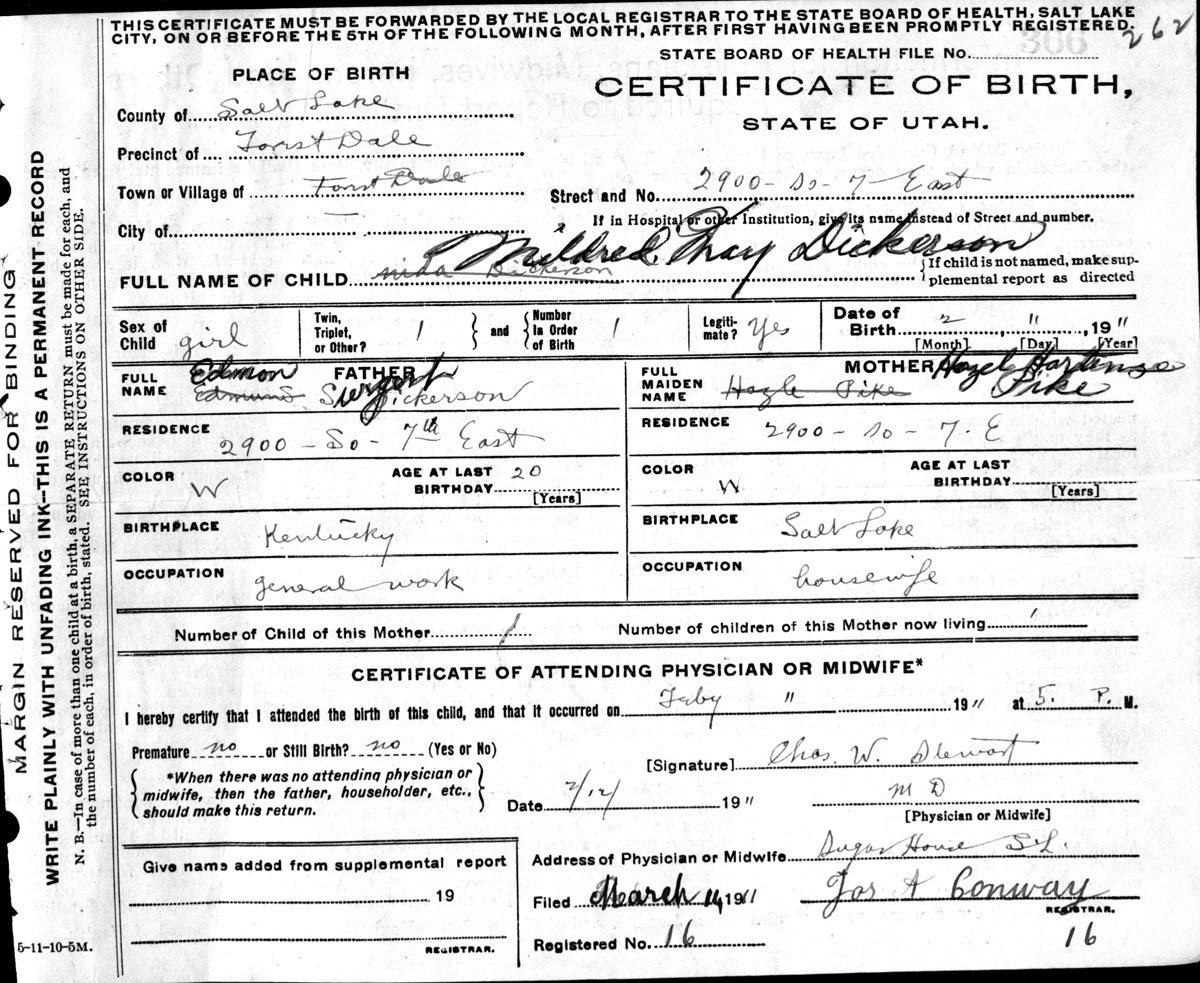 THIS CERTIFICATE MUST BE FORWARDED BY THE LOCAL REGISTRAR TO THE STATE BOARD OF HEALTH, SALT LAKE
CITY, ON OR BEFORE THE 5TH OF THE FOLLOWING MONTH, AFTER FIRST HAVING BEEN PROMPTLY REGISTERED.
262
STATE BOARD OF HEALTH FILE No.
PLACE OF BIRTH
CERTIFICATE OF BIRTH,
STATE OF UTAH.
County of Salt Lake
Precinct of Forst Dale
Town or Village of Forst Dale
Street and No. 2900 - So - 7 - East
City of —
If in Hospital or other Institution, give its name instead of Street and number.
Mildred May Dickerson
FULL NAME OF CHILD Dickerson
If child is not named, make sup-
plemental report as directed
Sex of Child girl
Twin, Triplet, or Other? 1 and Number In Order of Birth 1
Legiti-mate? Yes
Date of Birth 2, 11, 1911
[Month] [Day] [Year]
FATHER
FULL NAME Edmon Surgent
Edmund S Dickerson
RESIDENCE
2900 - So - 7th East
COLOR W
AGE AT LAST BIRTHDAY 20
[Years]
BIRTHPLACE Kentucky
OCCUPATION general work
MOTHER
FULL MAIDEN NAME Hazel Hartense Pike
Hazle Pike
RESIDENCE
2900 - So - 7 - E
COLOR W
AGE AT LAST BIRTHDAY
[Years]
BIRTHPLACE Salt Lake
OCCUPATION housewife
Number of Child of this Mother 1
Number of children of this Mother now living 1
CERTIFICATE OF ATTENDING PHYSICIAN OR MIDWIFE*
I hereby certify that I attended the birth of this child, and that it occurred on Feby 11 1911 at 5. P. M.
Premature no or Still Birth? no (Yes or No)
*When there was no attending physician or
midwife, then the father, householder, etc.,
should make this return.
[Signature] Chas. W. Stewart
Date 2/12/ 1911
M D
[Physician or Midwife]
Give name added from supplemental report
19
REGISTRAR.
Address of Physician or Midwife Sugar House S.L.
Filed March 14, 1911
Jos A Conway
REGISTRAR.
Registered No. 16
16
5-11-10-5M.
MARGIN RESERVED FOR BINDING
WRITE PLAINLY WITH UNFADING INK—THIS IS A PERMANENT RECORD
N. B.—In case of more than one child at a birth, a SEPARATE RETURN must be made for each, and
the number of each, in order of birth, stated. SEE INSTRUCTIONS ON OTHER SIDE.